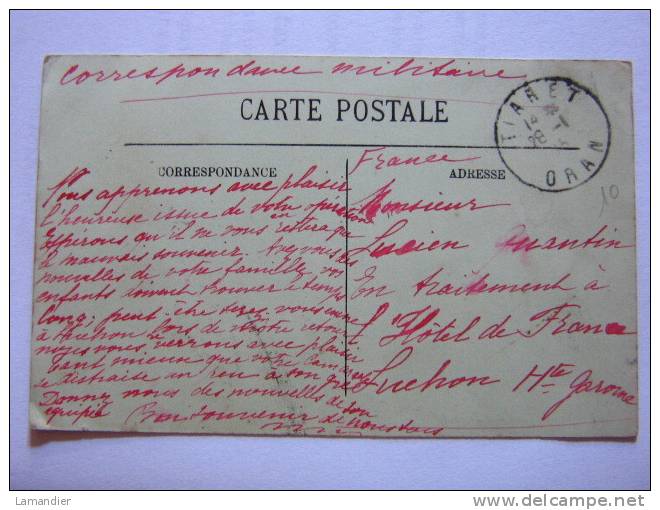 Correspondance militaire
CARTE POSTALE
TIARET
ORAN
CORRESPONDANCE
ADRESSE
France
10
Nous apprenons avec plaisir
l'heureuse issue de votre opération
Espérons qu'il ne vous en restera que
le mauvais souvenir. Avez vous des
nouvelles de votre famille, vos
enfants doivent trouver le temps
long; peut-être serez vous encore
à Luchon lors de notre retour
nous vous verrons avec plaisir
tant mieux que votre
se distraise un peu à son
Donnez nous des nouvelles de son
équipée Bon souvenir de nous tous
Monsieur
Lucien Quantin
En traitement à
l'Hôtel de France
Luchon Hte Garonne
Lamandier
delcampe.net